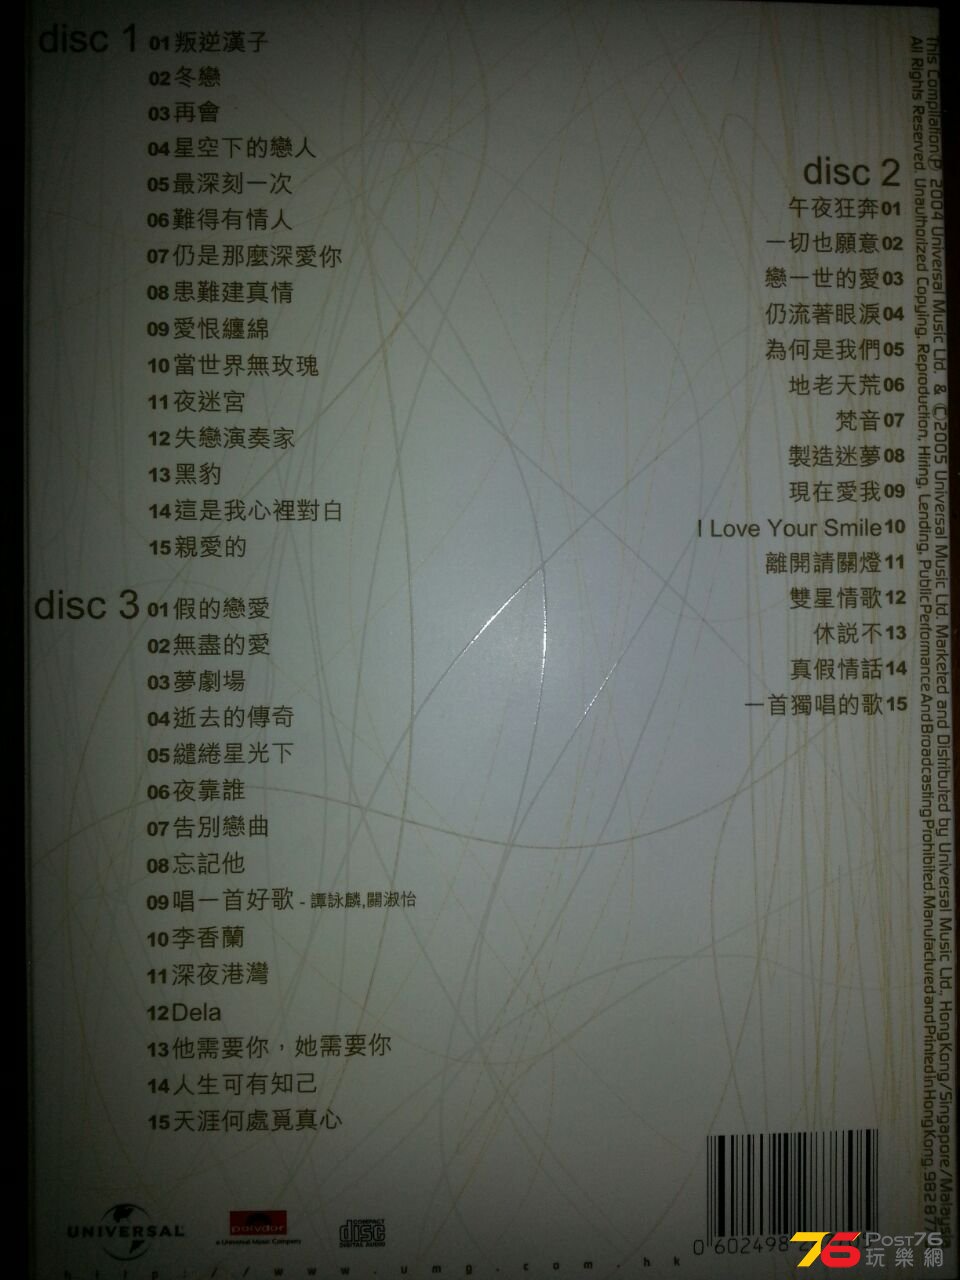 disc 1
01 叛逆漢子
02 冬戀
03 再會
04 星空下的戀人
05 最深刻一次
06 難得有情人
07 仍是那麼深愛你
08 患難建真情
09 愛恨纏綿
10 當世界無玫瑰
11 夜迷宮
12 失戀演奏家
13 黑豹
14 這是我心裡對白
15 親愛的
disc 2
午夜狂奔 01
一切也願意 02
戀一世的愛 03
仍流著眼淚 04
為何是我們 05
地老天荒 06
梵音 07
製造迷夢 08
現在愛我 09
I Love Your Smile 10
離開請關燈 11
雙星情歌 12
休說不 13
真假情話 14
一首獨唱的歌 15
disc 3
01 假的戀愛
02 無盡的愛
03 夢劇場
04 逝去的傳奇
05 繾綣星光下
06 夜靠誰
07 告別戀曲
08 忘記他
09 唱一首好歌 - 譚詠麟,關淑怡
10 李香蘭
11 深夜港灣
12 Dela
13 他需要你，她需要你
14 人生可有知己
15 天涯何處覓真心
This Compilation Ⓟ 2004 Universal Music Ltd. & ©2005 Universal Music Ltd. Marketed and Distributed by Universal Music Ltd., Hong Kong/Singapore/Malaysia
All Rights Reserved. Unauthorized Copying, Reproduction, Hiring, Lending, Public Performance And Broadcasting Prohibited. Manufactured and Printed in Hong Kong. 982877
UNIVERSAL
polydor
a Universal Music Company
COMPACT
disc
DIGITAL AUDIO
0 602498 2
http://www.umg.com.hk
76 POST76
玩樂網